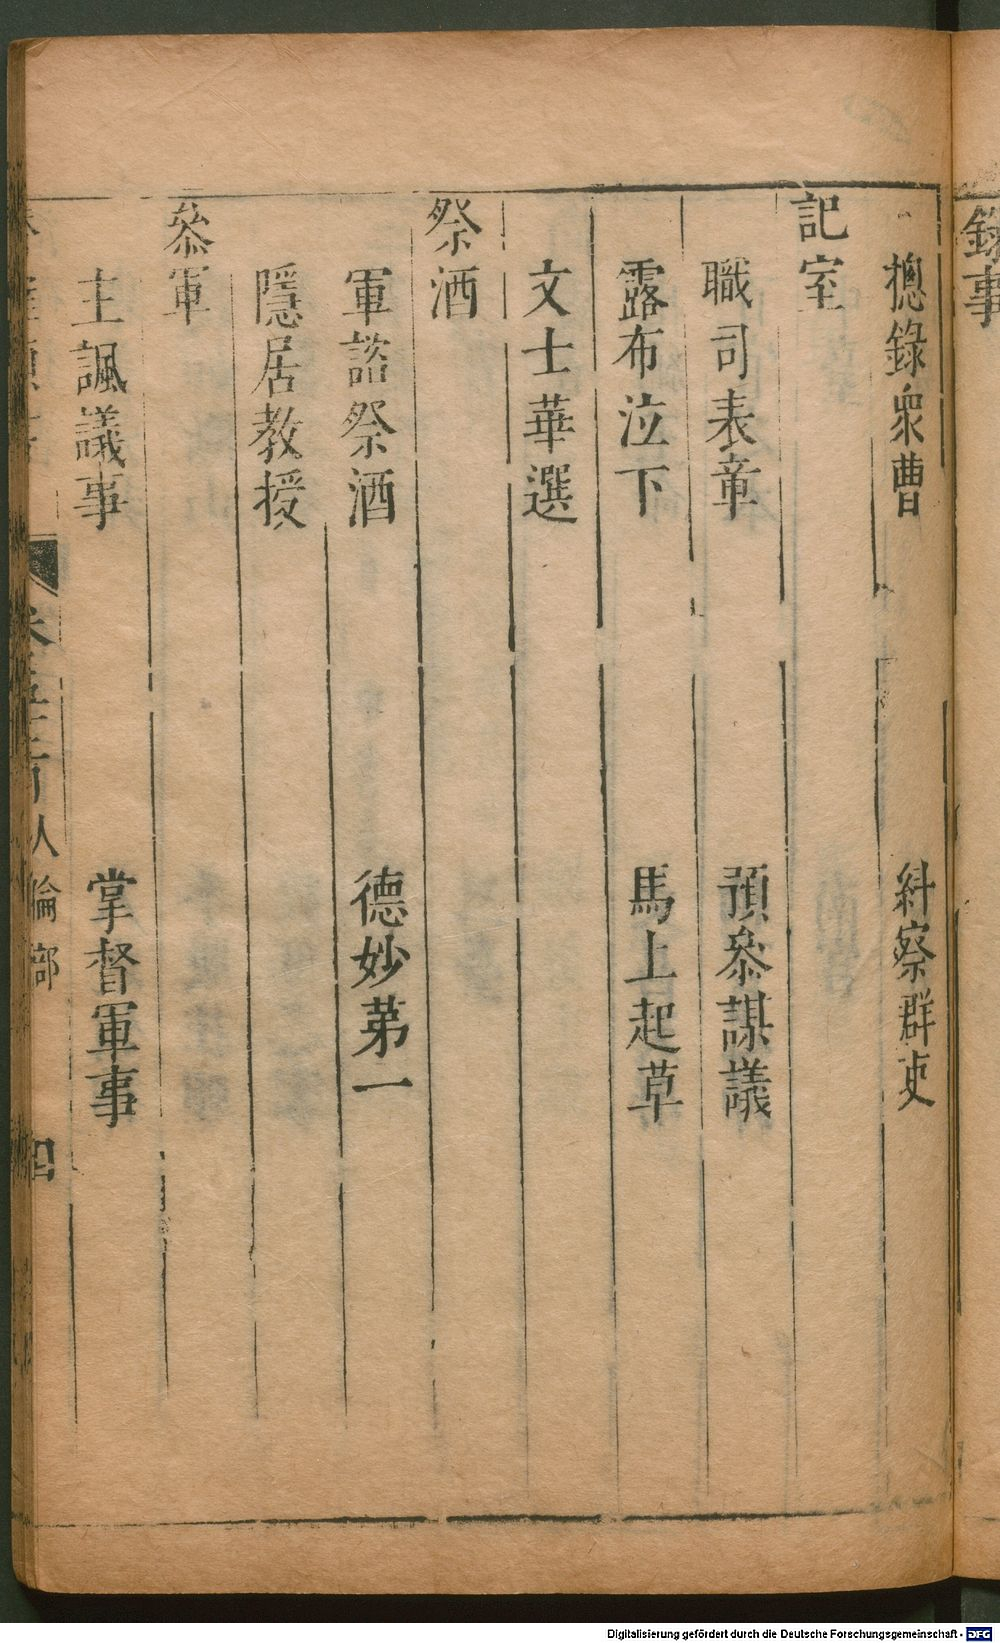 錄事
摠錄衆曹 糾察群吏
記室
職司表章 預叅謀議
露布泣下 馬上起草
文士華選
祭酒
軍諮祭酒 德妙苐一
隱居教授
叅軍
主諷議事 掌督軍事
人倫部 四
Digitalisierung gefördert durch die Deutsche Forschungsgemeinschaft - DFG